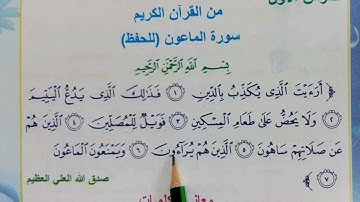 من القرآن الكريم
سورة الماعون (للحفظ)
بِسْمِ ٱللَّهِ ٱلرَّحْمَٰنِ ٱلرَّحِيمِ
﴿ أَرَءَيْتَ ٱلَّذِى يُكَذِّبُ بِٱلدِّينِ ١ فَذَٰلِكَ ٱلَّذِى يَدُعُّ ٱلْيَتِيمَ
٢ وَلَا يَحُضُّ عَلَىٰ طَعَامِ ٱلْمِسْكِينِ ٣ فَوَيْلٌ لِّلْمُصَلِّينَ ٤ ٱلَّذِينَ هُمْ
عَن صَلَاتِهِمْ سَاهُونَ ٥ ٱلَّذِينَ هُمْ يُرَآءُونَ ٦ وَيَمْنَعُونَ ٱلْمَاعُونَ
٧ ﴾ صدق الله العلي العظيم